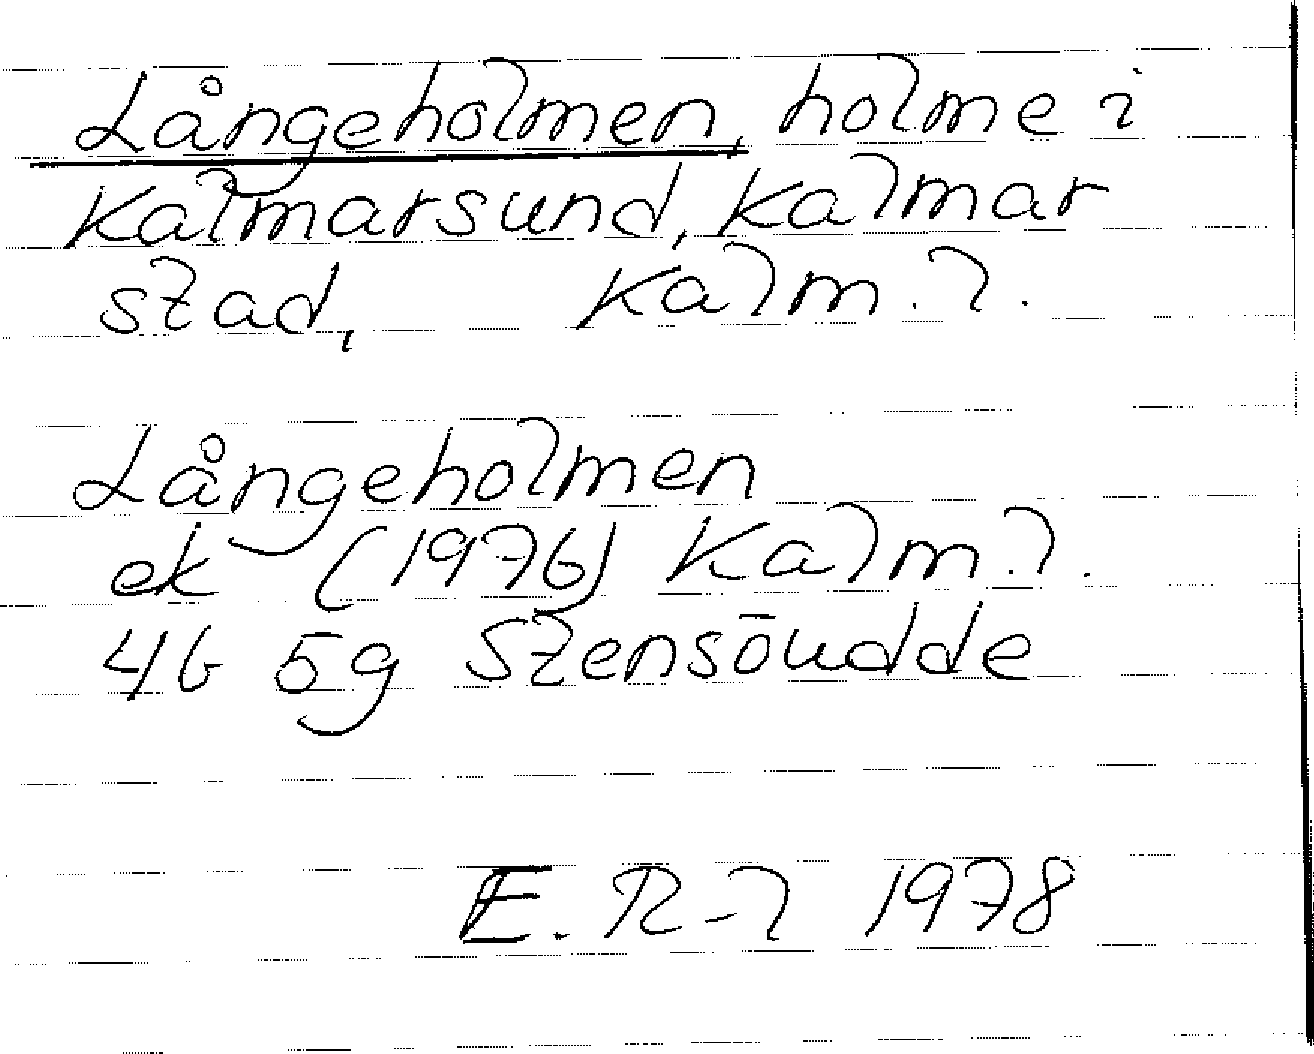 Långeholmen, holme i
Kalmarsund, Kalmar
stad, Kalm. l.
Långeholmen
ek (1976) Kalm. l.
4G 5g Stensöudde
E. R-l 1978